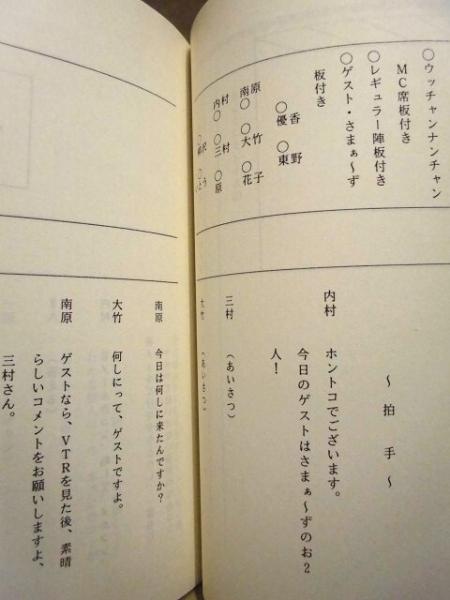 ○ウッチャンナンチャン
MC席板付き
○レギュラー陣板付き
○ゲスト・さまぁ～ず
板付き
○優香 ○東野
南原○ ○大竹 ○花子
内村○ ○三村 ○原
～ 拍 手 ～
内村 ホントコでございます。
今日のゲストはさまぁ～ずのお2
人！
三村 (あいさつ)
大竹 (あいさつ)
南原 今日は何しに来たんですか？
大竹 何しにって、ゲストですよ。
南原 ゲストなら、VTRを見た後、素晴
らしいコメントをお願いしますよ、
三村さん。